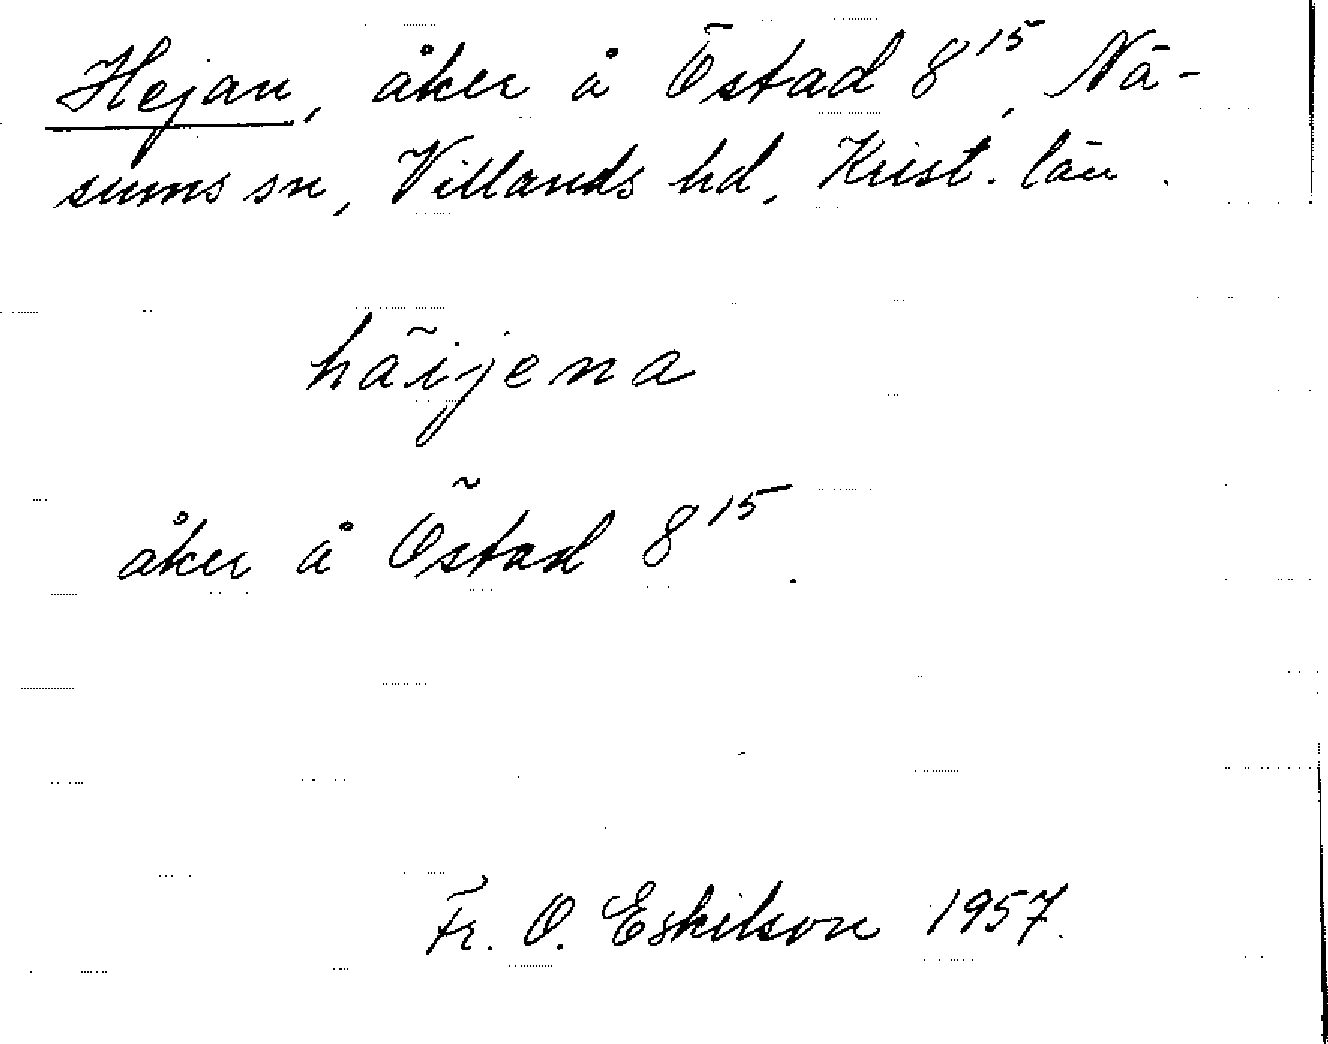 Hejan, åker å Östad 8¹⁵, Nä-
sums sn, Villands hd, Krist. län.
häijena
åker å Östad 8¹⁵.
Fr. O. Eskilson 1957.